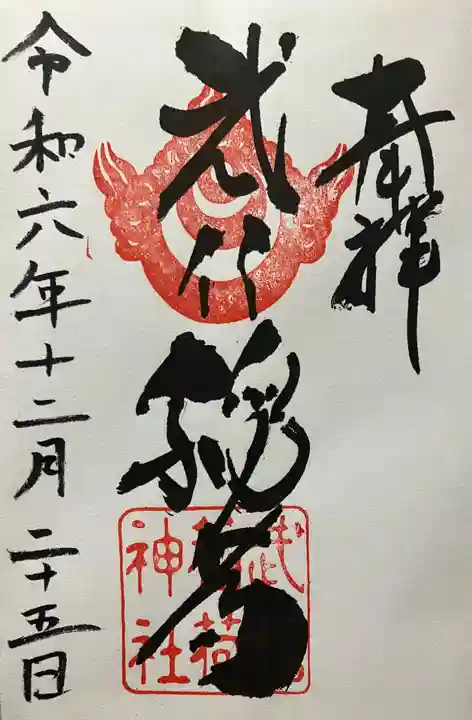 奉拝
武
稲荷
稲荷
神社
令和六年十二月二十五日